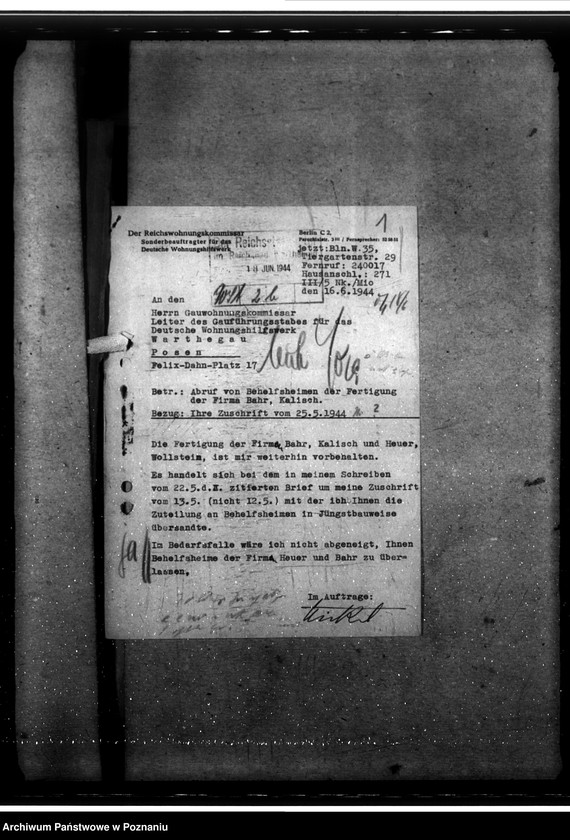 1
Der Reichswohnungskommissar
Sonderbeauftragter für das
Deutsche Wohnungshilfswerk
Berlin C 2,
jetzt:Bln.W.35,
Tiergartenstr. 29
Fernruf: 240017
Hausanschl.: 271
III/5 Nk./Mio
den 16.6.1944
18 JUN. 1944
An den
Herrn Gauwohnungskommissar
Leiter des Gauführungsstabes für das
Deutsche Wohnungshilfswerk
W a r t h e g a u
P o s e n
Felix-Dahn-Platz 17
Betr.: Abruf von Behelfsheimen der Fertigung
der Firma Bahr, Kalisch.
Bezug: Ihre Zuschrift vom 25.5.1944
Die Fertigung der Firma Bahr, Kalisch und Heuer,
Wollstein, ist mir weiterhin vorbehalten.
Es handelt sich bei dem in meinem Schreiben
vom 22.5.d.J. zitierten Brief um meine Zuschrift
vom 13.5. (nicht 12.5.) mit der ibh Ihnen die
Zuteilung an Behelfsheimen in Jüngstbauweise
übersandte.
Im Bedarfsfalle wäre ich nicht abgeneigt, Ihnen
Behelfsheime der Firma Heuer und Bahr zu über-
lassen,
Im Auftrage:
Archiwum Państwowe w Poznaniu